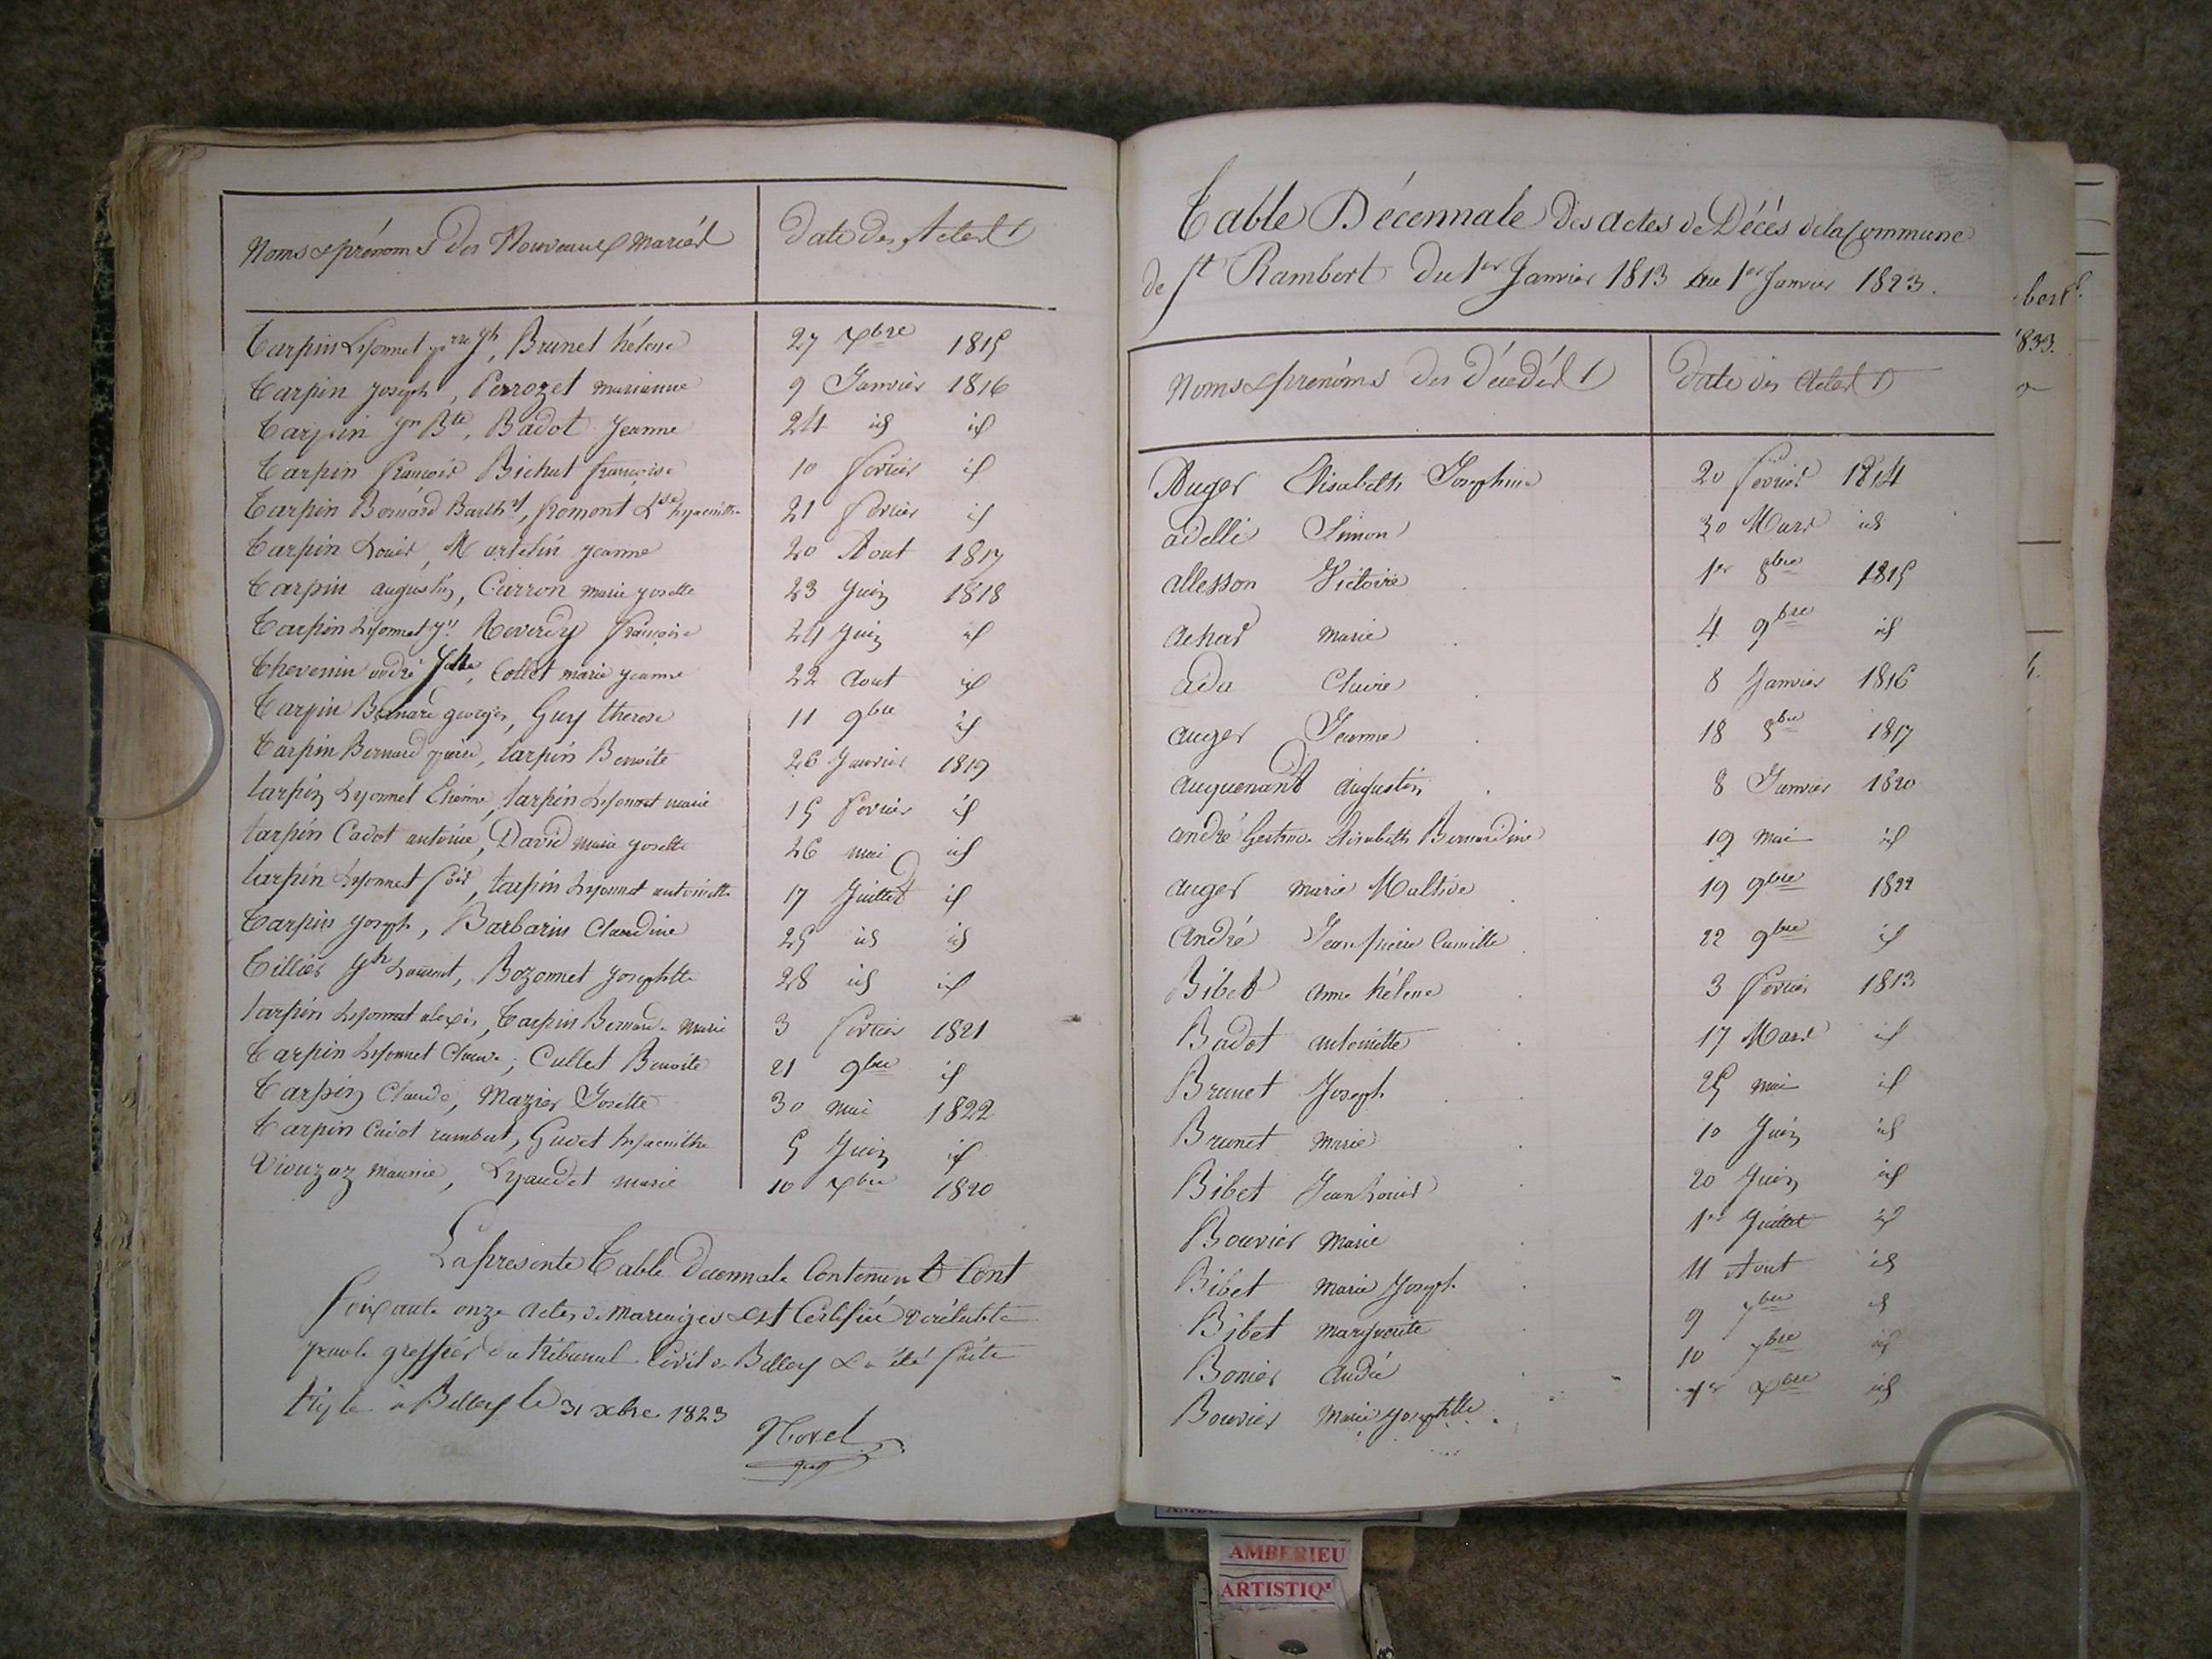 Noms & prénoms des Nouveaux mariés
Date des Actes
Tarpin Lyonnet prre jh, Brunet hélène 27 xbre 1815
Tarpin joseph, Perrozet marianne 9 Janvier 1816
Tarpin jn Bte, Badot Jeanne 24 id id
Tarpin françois Bichat françoise 10 fevrier id
Tarpin Bernard Barthl, fromont Lse hyacinthe 21 fevrier id
Tarpin Louis, Martelin jeanne 20 Aout 1817
Tarpin augustin, Curron marie josette 23 juin 1818
Tarpin Lyonnet Reverdy françoise 24 juin id
Thevenin andré, Collet marie jeanne 22 Aout id
Tarpin Bernard georges, Guy therese 11 9bre id
Tarpin Bernard pierre, tarpin Benoite 26 Janvier 1819
tarpin Lyonnet Etienne, tarpin Lyonnet marie 15 fevrier id
tarpin Cadot antoine, David marie josette 26 mai id
tarpin Lyonnet fois, tarpin Lyonnet antoinette 17 Juillet id
Tarpin joseph, Barbarin Claudine 25 id id
Tillier jh Laurent, Bozonnet josephtte 28 id id
tarpin Lyonnet alexis, Tarpin Bernard marie 3 fevrier 1821
Tarpin Lyonnet Claude, Cullet Benoite 21 9bre id
Tarpin Claude, Mazier Josette 30 mai 1822
Tarpin Cadot rambert, Gudet hyacinthe 5 Juin id
Viouzoz maurice, Lyaudet marie 10 xbre 1820
La presente Table decennale Contenant Cent
soixante onze actes de mariages est Certifiée véritable
par le greffier du tribunal Civil de Belley & a été faite
triple à Belley le 31 xbre 1823
Morel
Table Décennale des actes de Décès de la Commune
de St Rambert du 1er Janvier 1813 au 1er Janvier 1823.
Noms & prenoms des décédés
Date des Actes
Auger Elisabeth Josephine 20 fevrier 1814
adelli Simon 30 Mars id
allesson Victoire 1er 8bre 1815
achar marie 4 9bre id
ada Claire 8 Janvier 1816
auger Jeanne 18 8bre 1817
auquenand augustin 8 Janvier 1820
andré Elisabeth Bernardine 19 mai id
auger marie 19 9bre 1822
André Jean pierre Camille 22 9bre id
Bibet anne hélène 3 fevrier 1813
Badot antoinette 17 Mars id
Brunet Joseph 25 mai id
Brunet marie 10 Juin id
Bibet Jean Louis 20 Juin id
Bouvier marie 1er Juillet id
Bibet marie Joseph 11 Aout id
Bibet marguerite 9 7bre id
Bonier andré 10 7bre id
Bouvier marie josephtte 1er xbre id
bert
1833.
AMBERIEU
ARTISTIQ